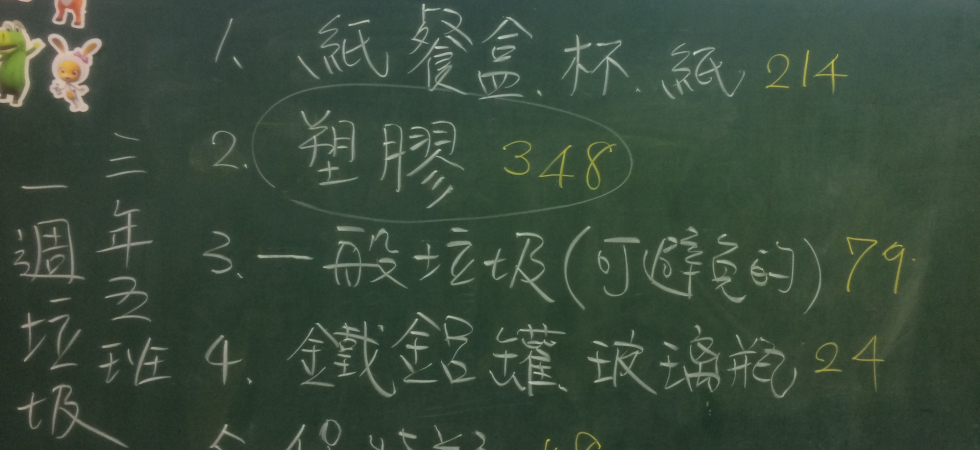 三年五班
一週垃圾
1. 紙餐盒、杯、紙 214
2. 塑膠 348
3. 一般垃圾(可避免的) 79
4. 鐵鋁罐、玻璃瓶 24